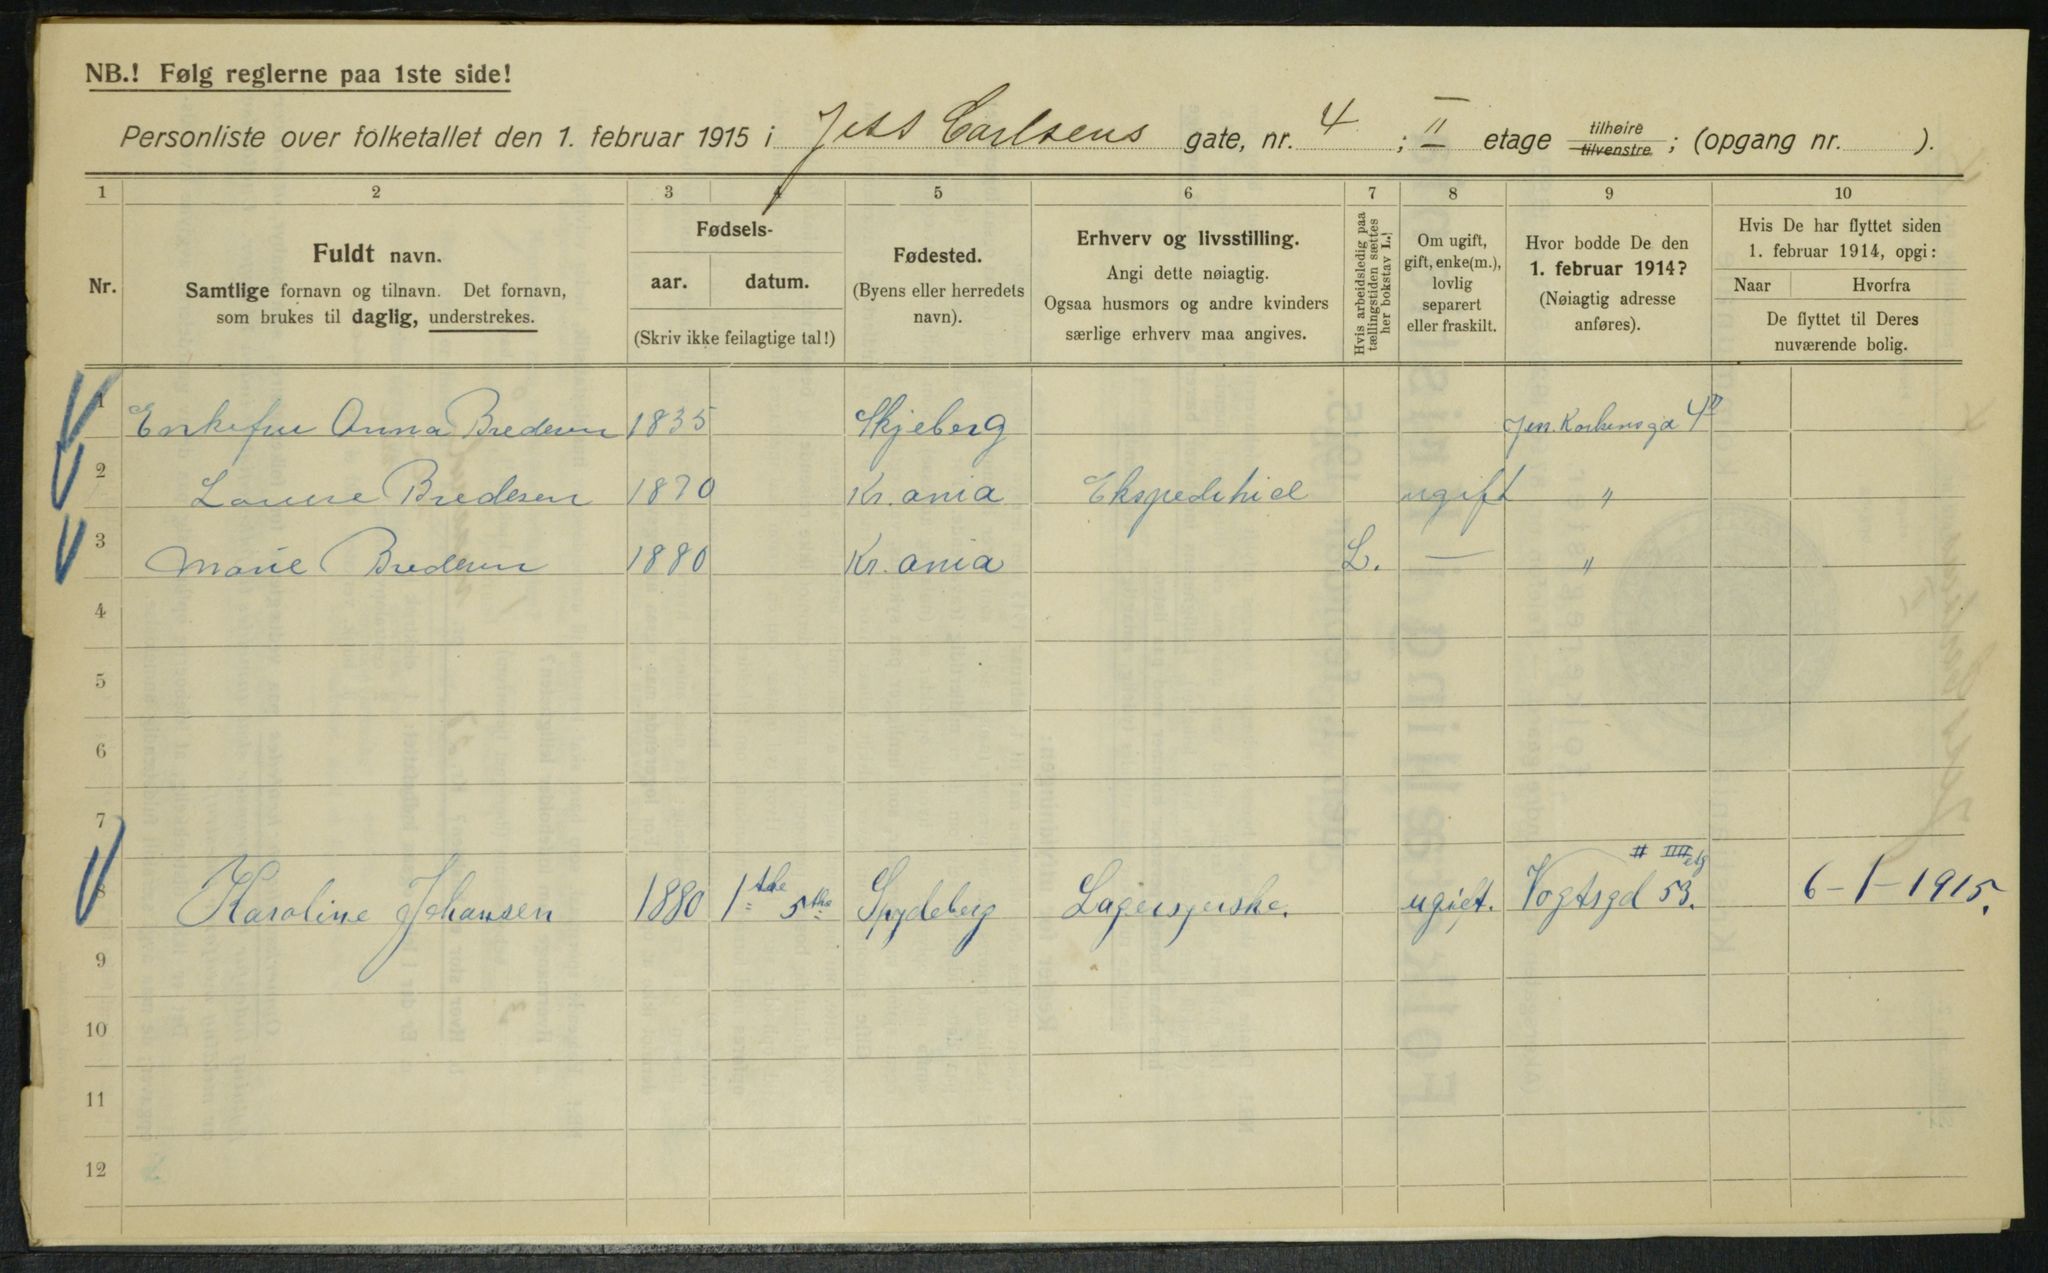 NB.! Følg reglerne paa 1ste side!
Personliste over folketallet den 1. februar 1915 i Jess Carlsens gate, nr. 4 ; II etage tilhøire tilvenstre ; (opgang nr. ).
1 2 3 4 5 6 7 8 9 10
Nr.
Fuldt navn.
Samtlige fornavn og tilnavn. Det fornavn,
som brukes til daglig, understrekes.
Fødsels-
aar. datum.
(Skriv ikke feilagtige tal!)
Fødested.
(Byens eller herredets
navn).
Erhverv og livsstilling.
Angi dette nøiagtig.
Ogsaa husmors og andre kvinders
særlige erhverv maa angives.
Hvis arbeidsledig paa
tællingstiden sættes
her bokstav L.!
Om ugift,
gift, enke(m.),
lovlig
separert
eller fraskilt.
Hvor bodde De den
1. februar 1914?
(Nøiagtig adresse
anføres).
Hvis De har flyttet siden
1. februar 1914, opgi:
Naar Hvorfra
De flyttet til Deres
nuværende bolig.
1 Enkefru Anna Bredesen 1835 Skjeberg Jess. Karlsens gd 4 II
2 Louise Bredesen 1870 Kr.ania Ekspeditrice ugift "
3 Marie Bredesen 1880 Kr.ania L. — "
4
5
6
7
8 Karoline Johansen 1880 1ste 5the Spydeberg Lagersyerske. ugift. Vogtsgd 53. II IIII etg 6-1-1915.
9
10
11
12